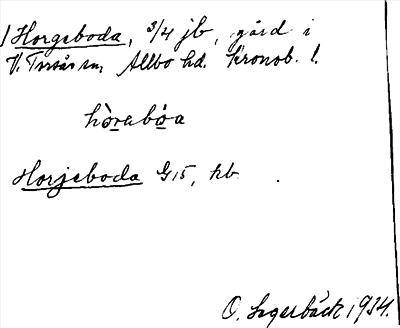 / Horgeboda, 3/4 jb, gård i
V. Torsås sn, Allbo hd. Kronob. l.
hòrabó̱a
Horjeboda G15, kb.
O. Lagerbäck 1934.